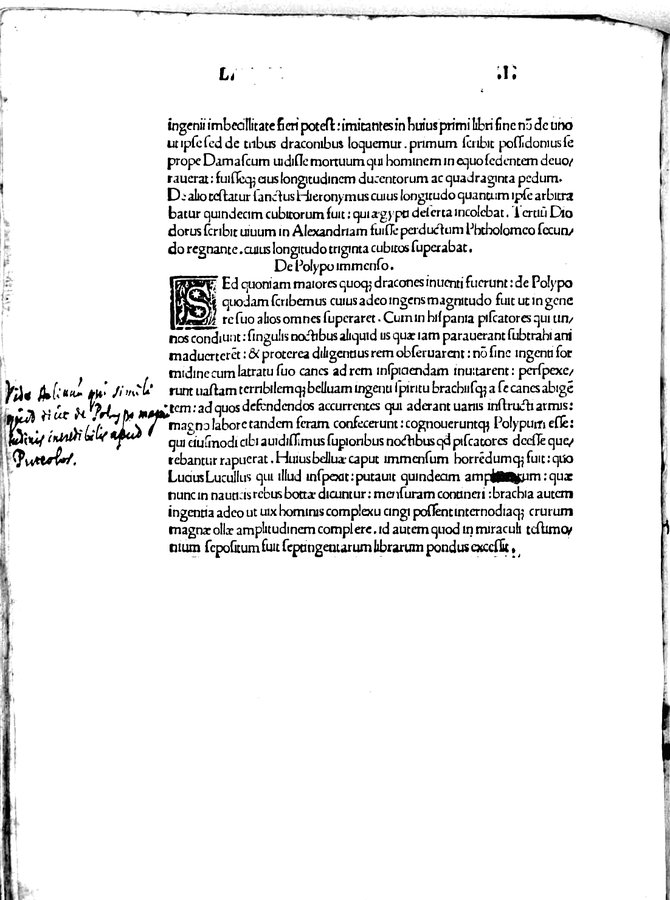 ingenii imbecillitate fieri potest: imitantes in huius primi libri fine nō de uno
ut ipse sed de tribus draconibus loquemur. primum scribit possidonius se
prope Damascum uidisse mortuum qui hominem in equo sedentem deuo/
rauerat: fuisseq; eius longitudinem ducentorum ac quadraginta pedum.
De alio testatur sanctus Hieronymus cuius longitudo quantum ipse arbitra
batur quindecim cubitorum fuit: qui ægypti deserta incolebat. Tertiū Dio
dorus scribit uiuum in Alexandriam fuisse perductum Phtholomeo secun/
do regnante. cuius longitudo triginta cubitos superabat.
De Polypo immenso.
SEd quoniam maiores quoq; dracones inuenti fuerunt: de Polypo
quodam scribemus cuius adeo ingens magnitudo fuit ut in gene
re suo alios omnes superaret. Cum in hispania piscatores qui tin/
nos condiunt: singulis noctibus aliquid iis quæ iam parauerant subtrahi ani
maduerterēt: & proterea diligentius rem obseruarent: nō sine ingenti for
midine cum latratu suo canes ad rem inspiciendam inuitarent: perspexe/
runt uastam terribilemq; belluam ingenti spiritu brachiisq; a se canes abigē
tem: ad quos defendendos accurrentes qui aderant uariis instructi armis:
magno labore tandem feram confecerunt: cognoueruntq; Polypum esse:
qui eiusmodi cibi auidissimus superioribus noctibus qd piscatores deesse que/
rebantur rapuerat. Huius belluæ caput immensum horrēdumq; fuit: quo
Lucius Lucullus qui illud inspexit: putauit quindecim quæ
nunc in nauticis rebus bottæ dicuntur: mensuram contineri: brachia autem
ingentia adeo ut uix hominis complexu cingi possent internodiaq; crurum
magnæ ollæ amplitudinem complere. id autem quod in miraculi testimo/
nium sepositum fuit septingentarum librarum pondus excessit.
Vide Aelianū qui simili
quid dicit de Polypo magni
tudinis incredibilis apud
Puteolos.